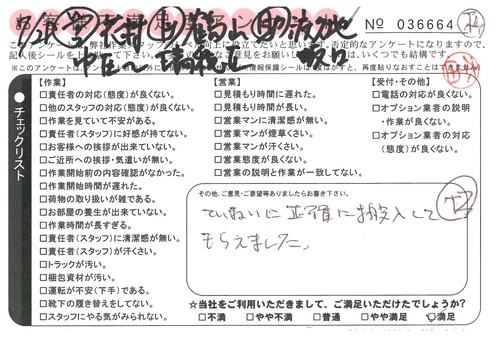 No 036664
このアンケートは、弊社作業
記入後シールを
は、いくつでも結構です。
※このアンケートは、
情報保護シールは
再度貼りなおすことはできません。
チェックリスト
【作業】
□責任者の対応(態度)が良くない。
□他のスタッフの対応(態度)が良くない。
□作業を見ていて不安がある。
□責任者(スタッフ)に好感が持てない。
□お客様への挨拶が出来ていない。
□ご近所への挨拶・気遣いが無い。
□作業開始前の内容確認がなかった。
□作業開始時間が遅れた。
□荷物の取り扱いが雑である。
□お部屋の養生が出来ていない。
□作業時間が長すぎる。
□責任者(スタッフ)に清潔感が無い。
□責任者(スタッフ)が汗くさい。
□トラックが汚い。
□梱包資材が汚い。
□運転が不安(下手)である。
□靴下の履き替えをしてない。
□スタッフにやる気がみられない。
【営業】
□見積もり時間に遅れた。
□見積もり時間が長い。
□営業マンに清潔感が無い。
□営業マンが煙草くさい。
□営業マンが汗くさい。
□営業態度が良くない。
□営業の説明と作業が一致してない。
【受付・その他】
□電話の対応が良くない。
□オプション業者の説明
・作業が良くない。
□オプション業者の対応
(態度)が良くない。
その他、ご意見・ご要望等ありましたらお書き下さい。
ていねいに
に搬入して
もらえました。
☆当社をご利用いただきまして、ご満足いただけたでしょうか?
□不満 □やや不満 □普通 □やや満足 □満足